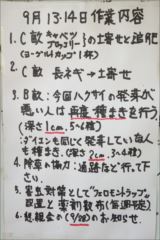 9月13.14日作業内容
1. C畝 キャベツ ブロッコリー の土寄せと追肥
(ヨーグルトカップ1杯)
2. C畝 長ネギ→土寄せ
3. B畝:今回ハクサイの発芽が
悪い人は再度種まきを行う
(深さ1cm. 5〜6粒)
ダイコンも同じく発芽していない人
も種まき.(深さ2cm. 3〜4粒)
4. 除草の協力:通路など行って下
さい.
5. 害虫対策としてフェロモントラップの
設置と薬剤散布(毎週予定)
6. 懇親会の(9/28)のお知らせ.